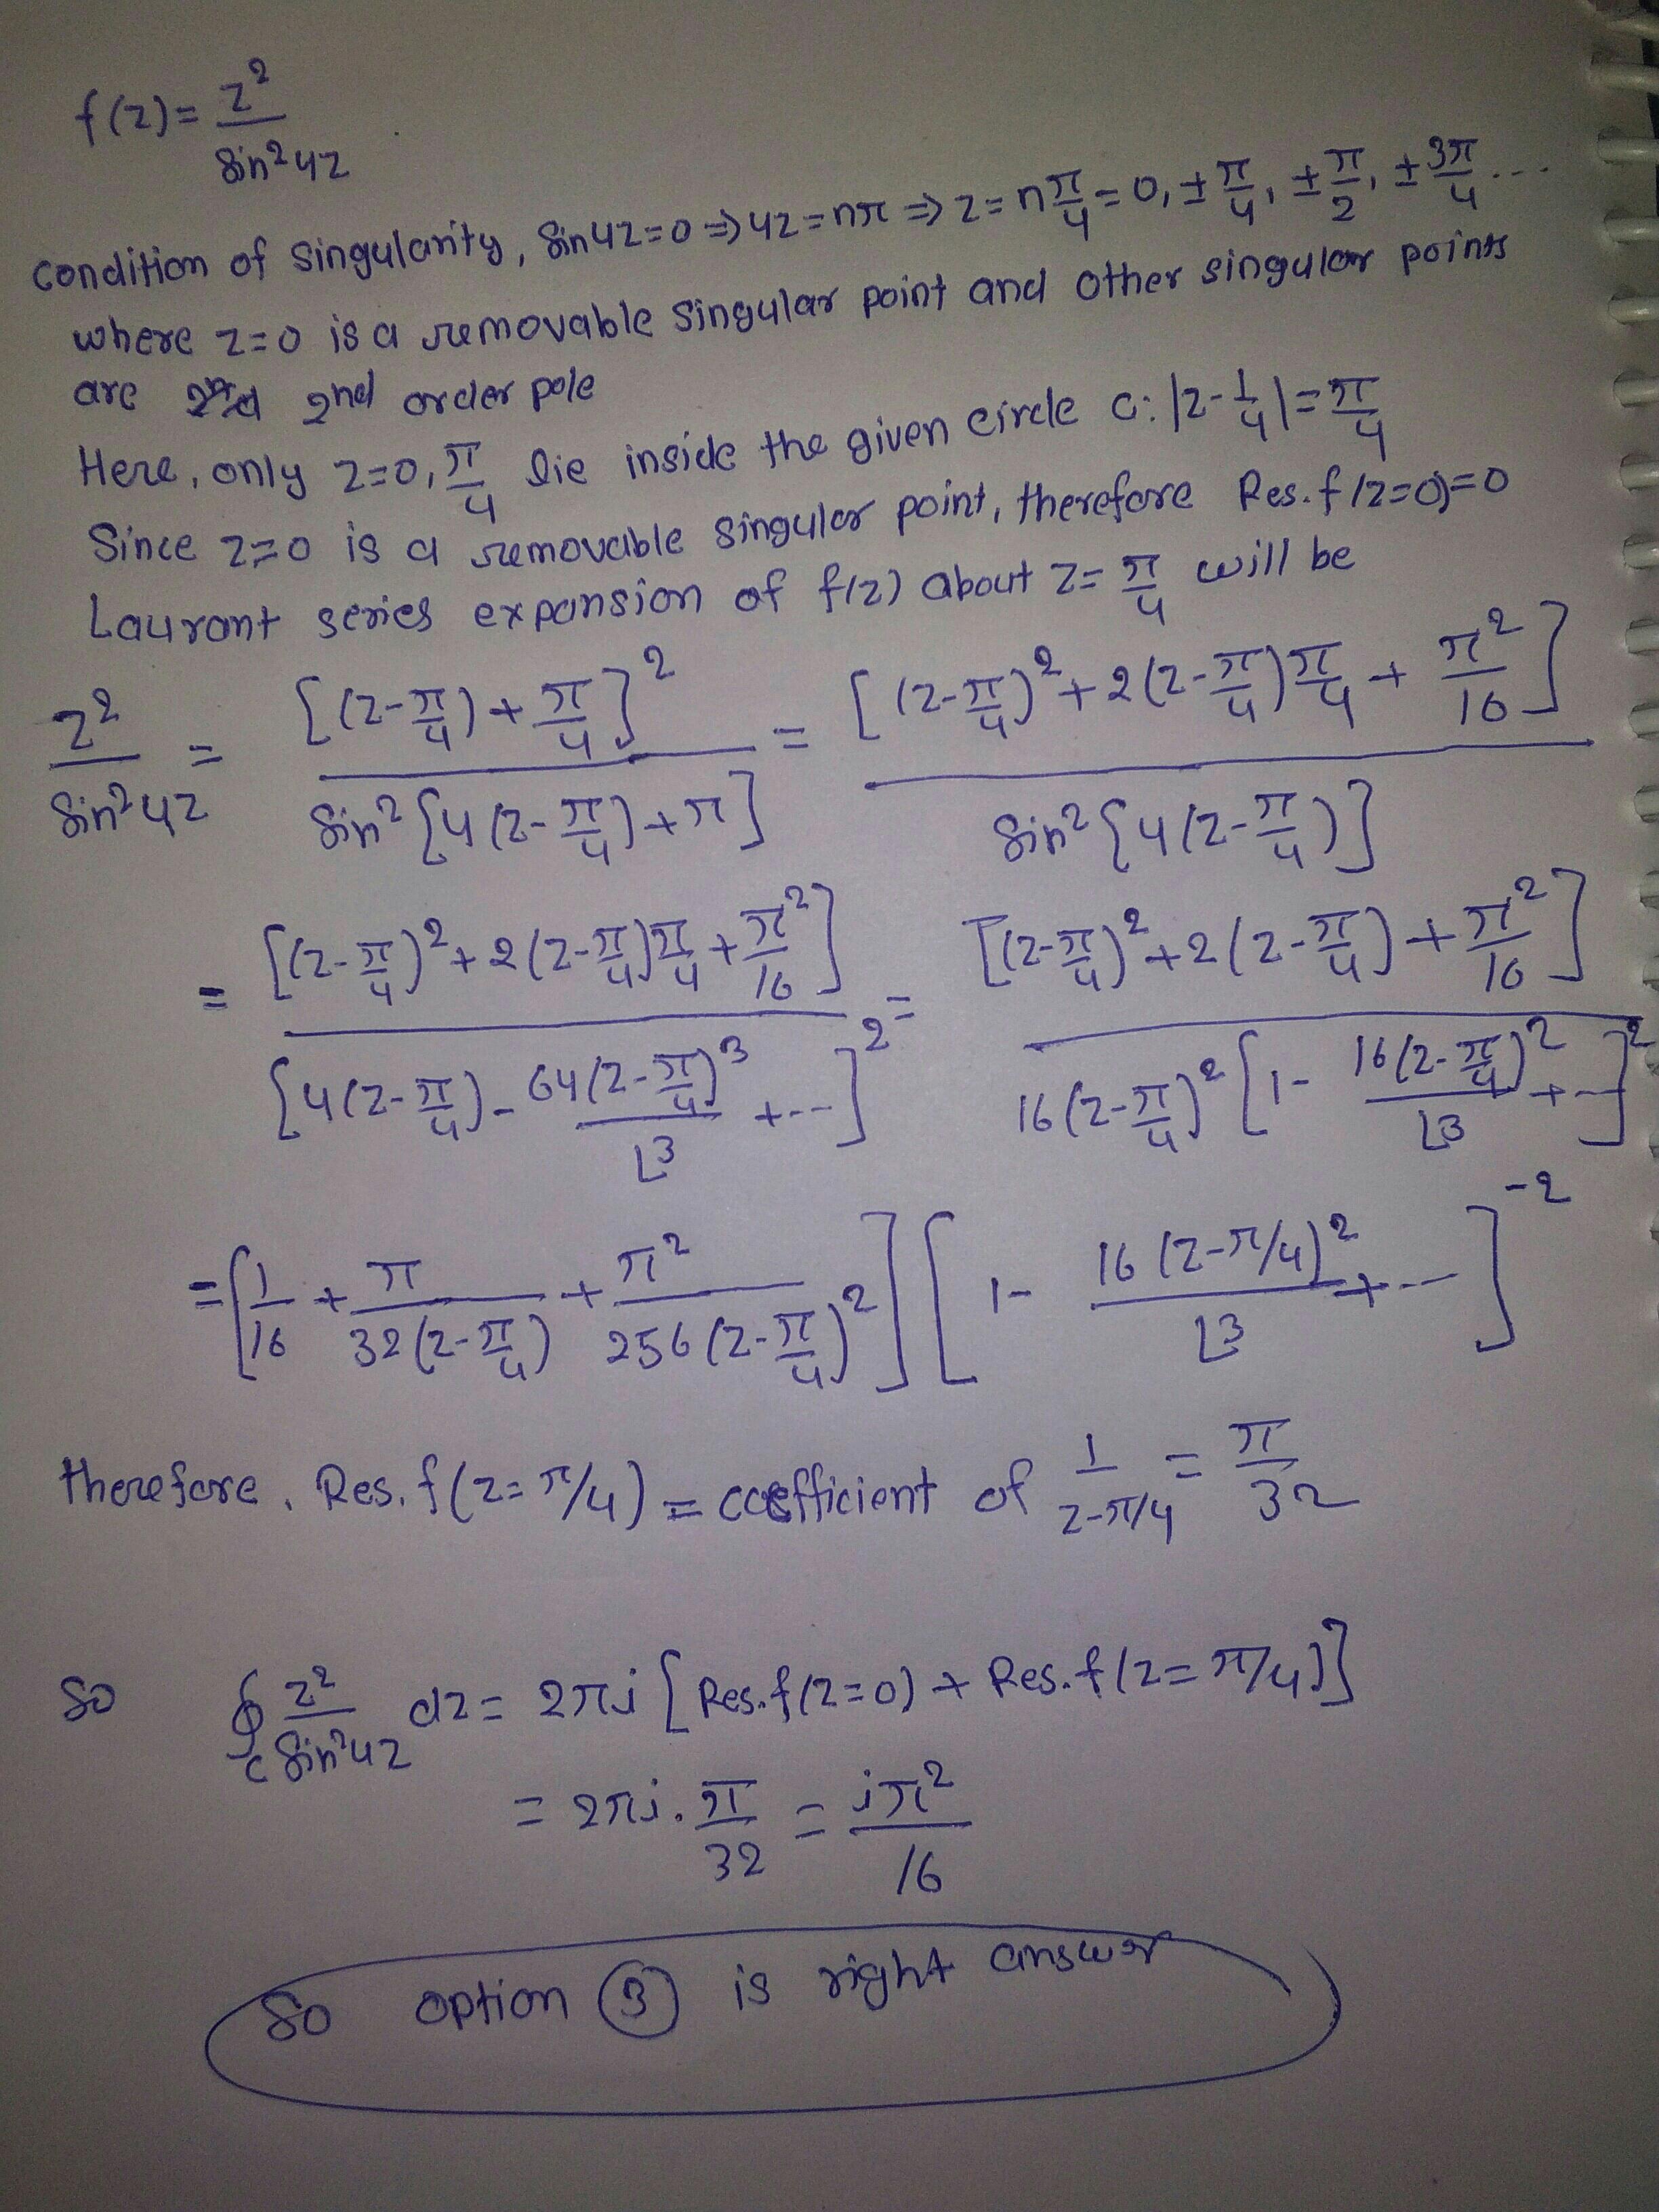 f(z) = z²/sin²4z
condition of singularity, sin4z=0 ⇒ 4z=nπ ⇒ z=nπ/4 = 0, ±π/4, ±π/2, ±3π/4 ...
where z=0 is a removable singular point and other singular points
are 2nd order pole
Here, only z=0, π/4 lie inside the given circle C: |z-1/4|=π/4
Since z=0 is a removable singular point, therefore Res.f(z=0)=0
Lauront series expansion of f(z) about z=π/4 will be
z²/sin²4z = [(z-π/4)+π/4]²/sin²{4(z-π/4)+π} = [(z-π/4)²+2(z-π/4)π/4+π²/16]/sin²{4(z-π/4)}
= [(z-π/4)²+2(z-π/4)π/4+π²/16]/[4(z-π/4)-64(z-π/4)³/⌊3+---]² = [(z-π/4)²+2(z-π/4)+π²/16]/16(z-π/4)²[1-16(z-π/4)²/⌊3+---]²
= [1/16+π/32(z-π/4)+π²/256(z-π/4)²][1-16(z-π/4)²/⌊3+---]⁻²
therefore, Res.f(z=π/4) = coefficient of 1/z-π/4 = π/32
So ∮c z²/sin²4z dz = 2πi[Res.f(z=0)+Res.f(z=π/4)]
= 2πi.π/32 = iπ²/16
So option (3) is right answer